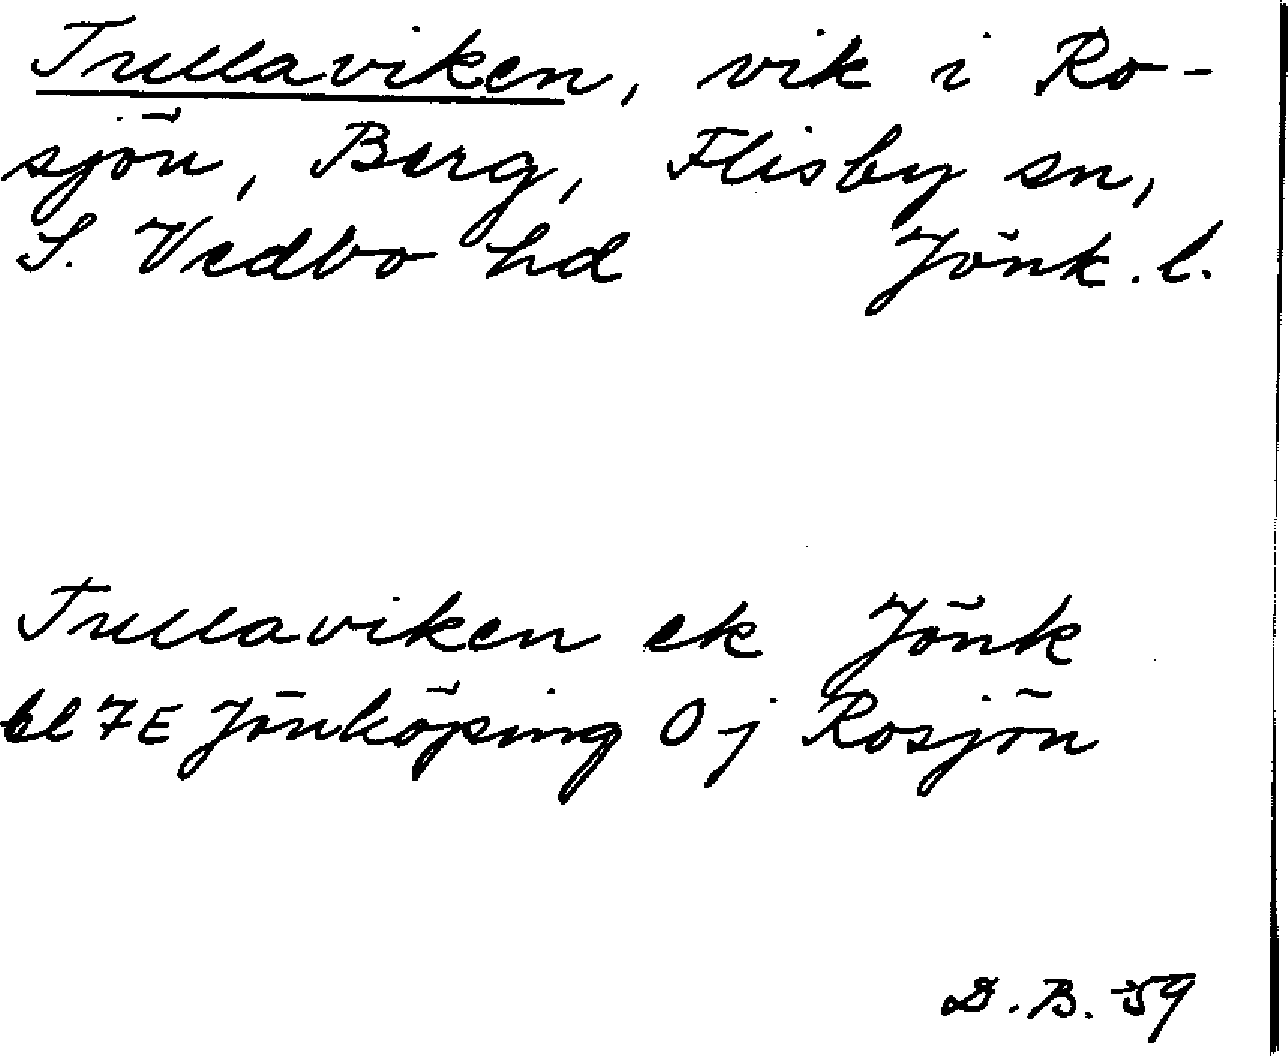 Trullaviken, vik i Ro-
sjön, Berg, Flisby sn,
S. Vedbo hd Jönk. l.
Trullaviken ek Jönk
bl 7E Jönköping 0 j Rosjön
D. B. -59